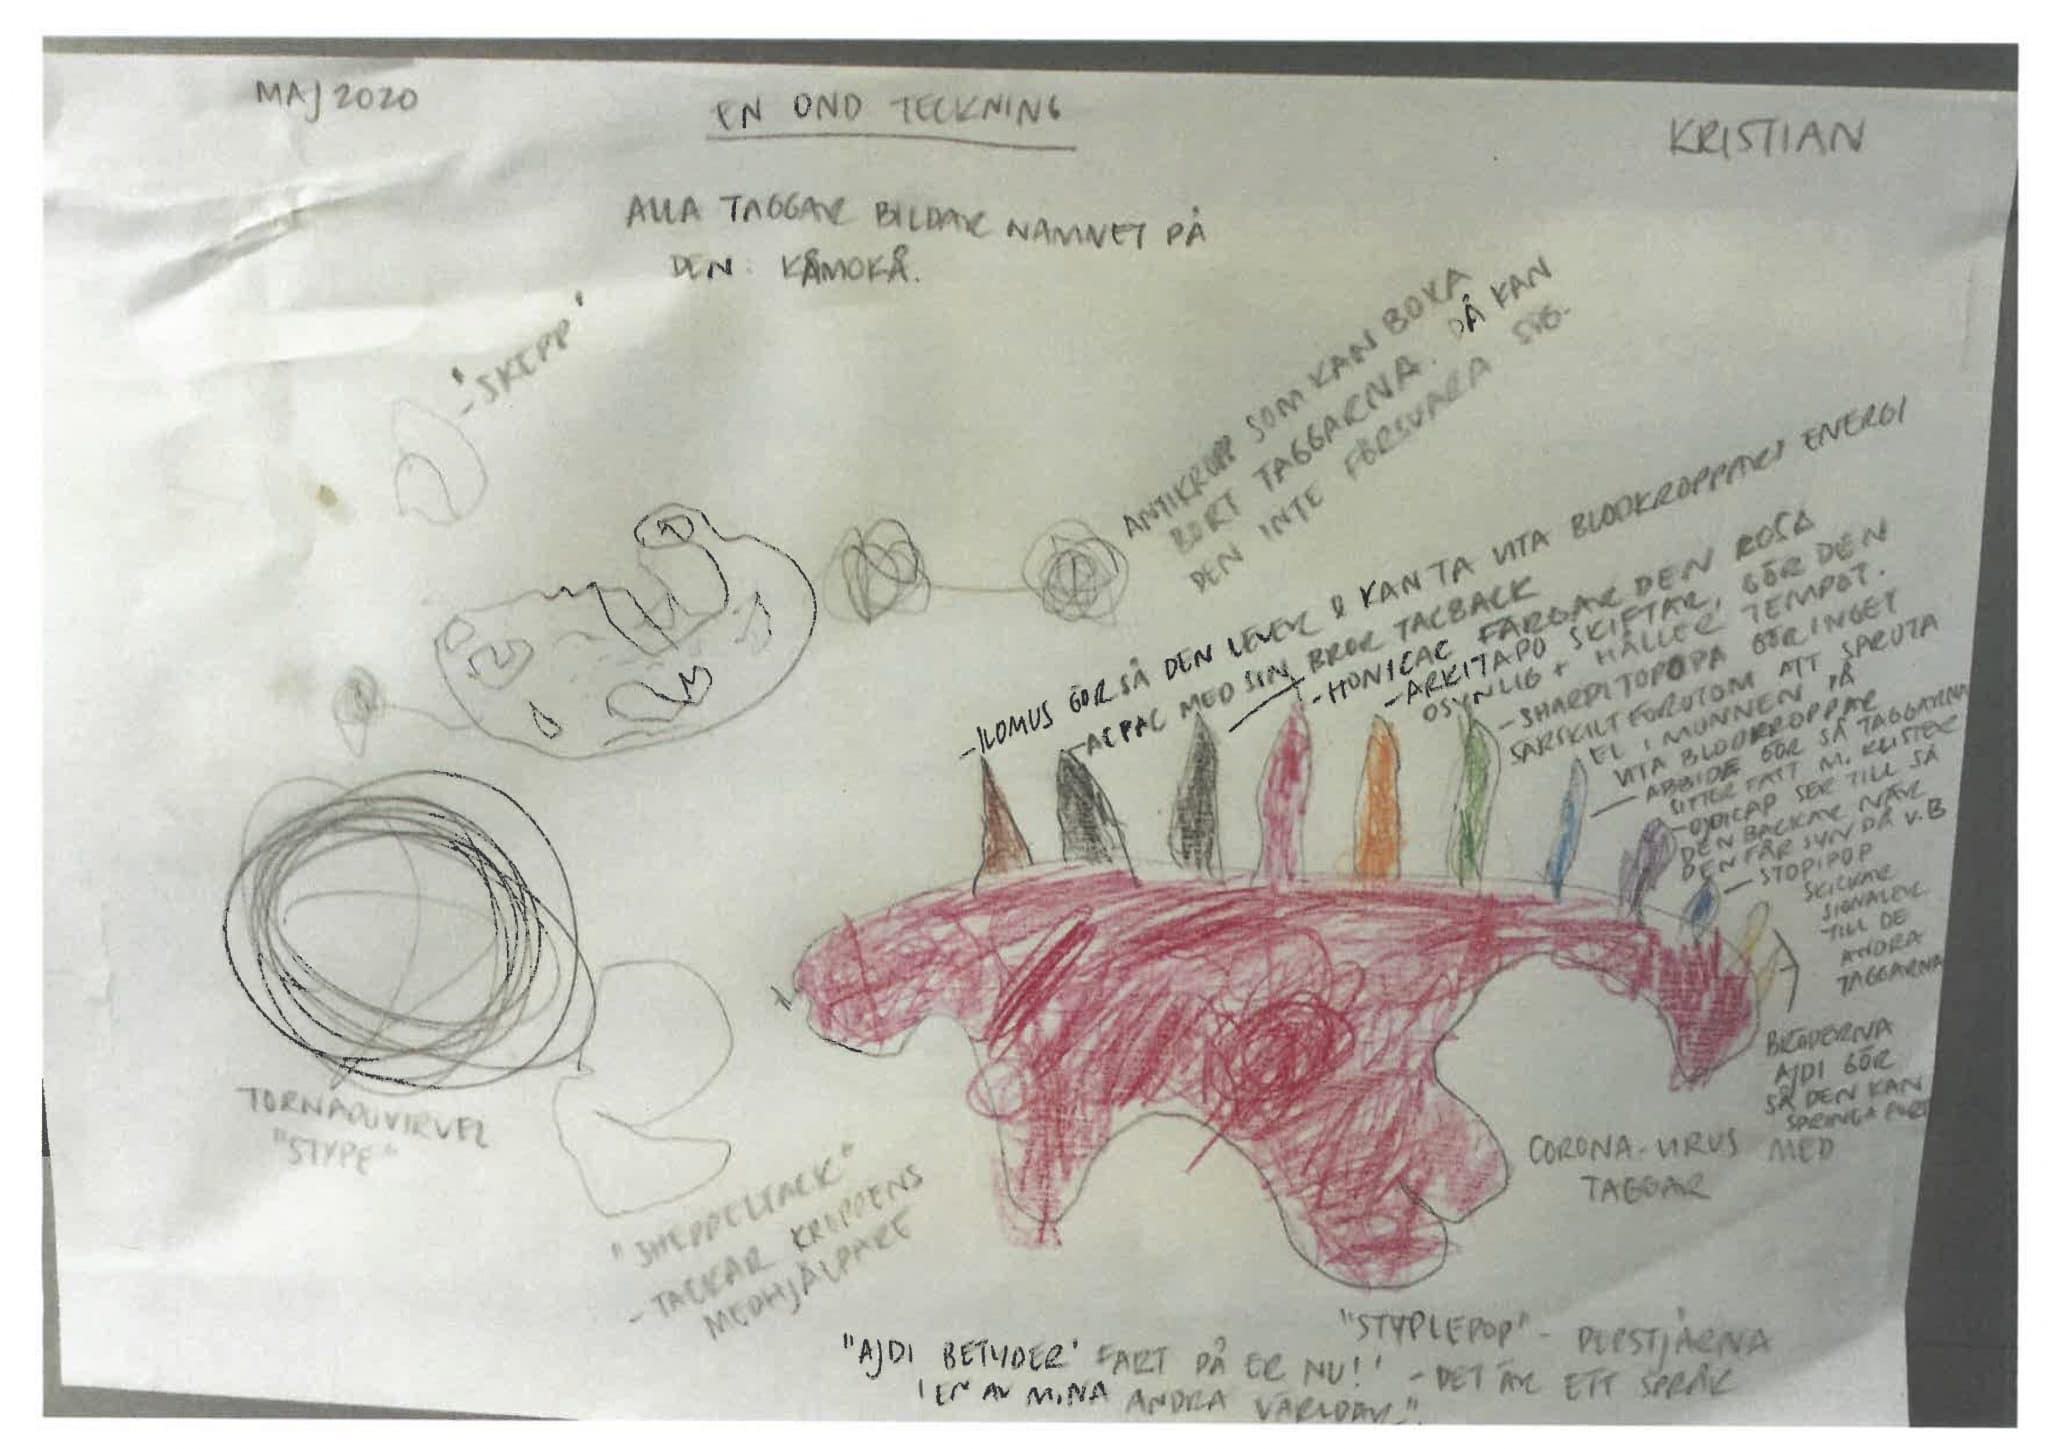 MAJ 2020
EN OND TECKNING
KRISTIAN
ALLA TAGGAR BILDAR NAMNET PÅ
DEN: KÅMOKÅ.
- 'SKIPP'
ANTIKROPP SOM KAN BOXA
BORT TAGGARNA. DÅ KAN
DEN INTE FÖRSVARA SIG.
- ILOMUS GÖR SÅ DEN LEVER & KAN TA VITA BLODKROPPARS ENERGI
- ACPAC MED SIN BROR TACBACK
- HONICAC FÄRGAR DEN ROSA
- ARKITAPO SKIFTAR, GÖR DEN
OSYNLIG + HÅLLER TEMPOT.
- SHARDITOPOPA GÖR INGET
SÄRSKILT FÖRUTOM ATT SPRUTA
EL I MUNNEN PÅ
VITA BLODKROPPAR
- ABBIDE GÖR SÅ TAGGARNA
SITTER FAST M. KLISTER
- OJOICAP SER TILL SÅ
DEN BACKAR NÄR
DEN FÅR SYN PÅ V.B
- STOPIPOP
SKICKAR
SIGNALER
TILL DE
ANDRA
TAGGARNA
BRÖDERNA
AJDI GÖR
SÅ DEN KAN
SPRINGA FORT
CORONA-VIRUS MED
TAGGAR
TORNADOVIRVEL
"STYPE"
"SHEPPELTACK"
- TACKAR KROPPENS
MEDHJÄLPARE
"STYPLEPOP" -
"AJDI BETYDER 'FART PÅ ER NU!' - DET ÄR ETT SPRÅK
I EN AV MINA ANDRA VÄRLDAR".